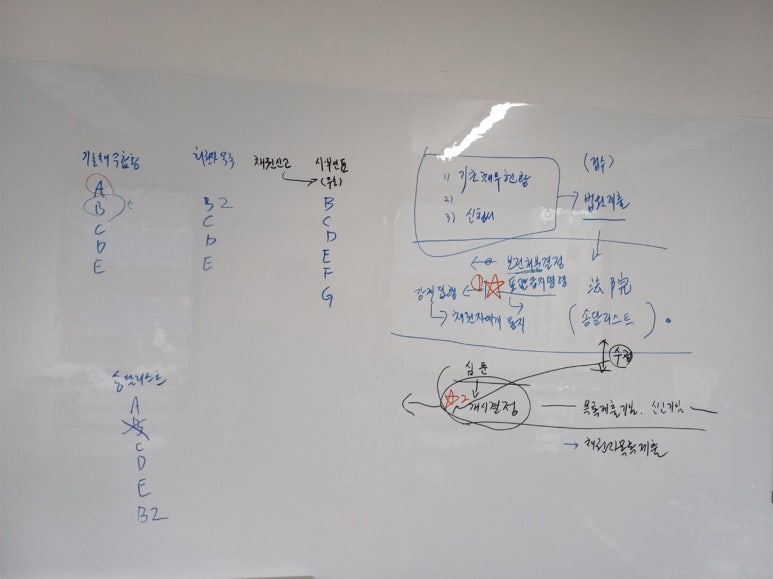 기존채무현황
A
B
C
D
E
채권자목록
B2
C
D
E
채권신고
시부인표
(우회)
B
C
D
E
F
G
송달리스트
A
B
C
D
E
B2
1) 기존채무현황
2)
3) 신청서
(접수)
법원제출
보전처분결정
포괄금지명령
1
강제집행
채권자에게 통지
法院
(송달리스트)
수정
심문
2
개시결정
목록제출기일, 신고기일
→ 채권자목록제출